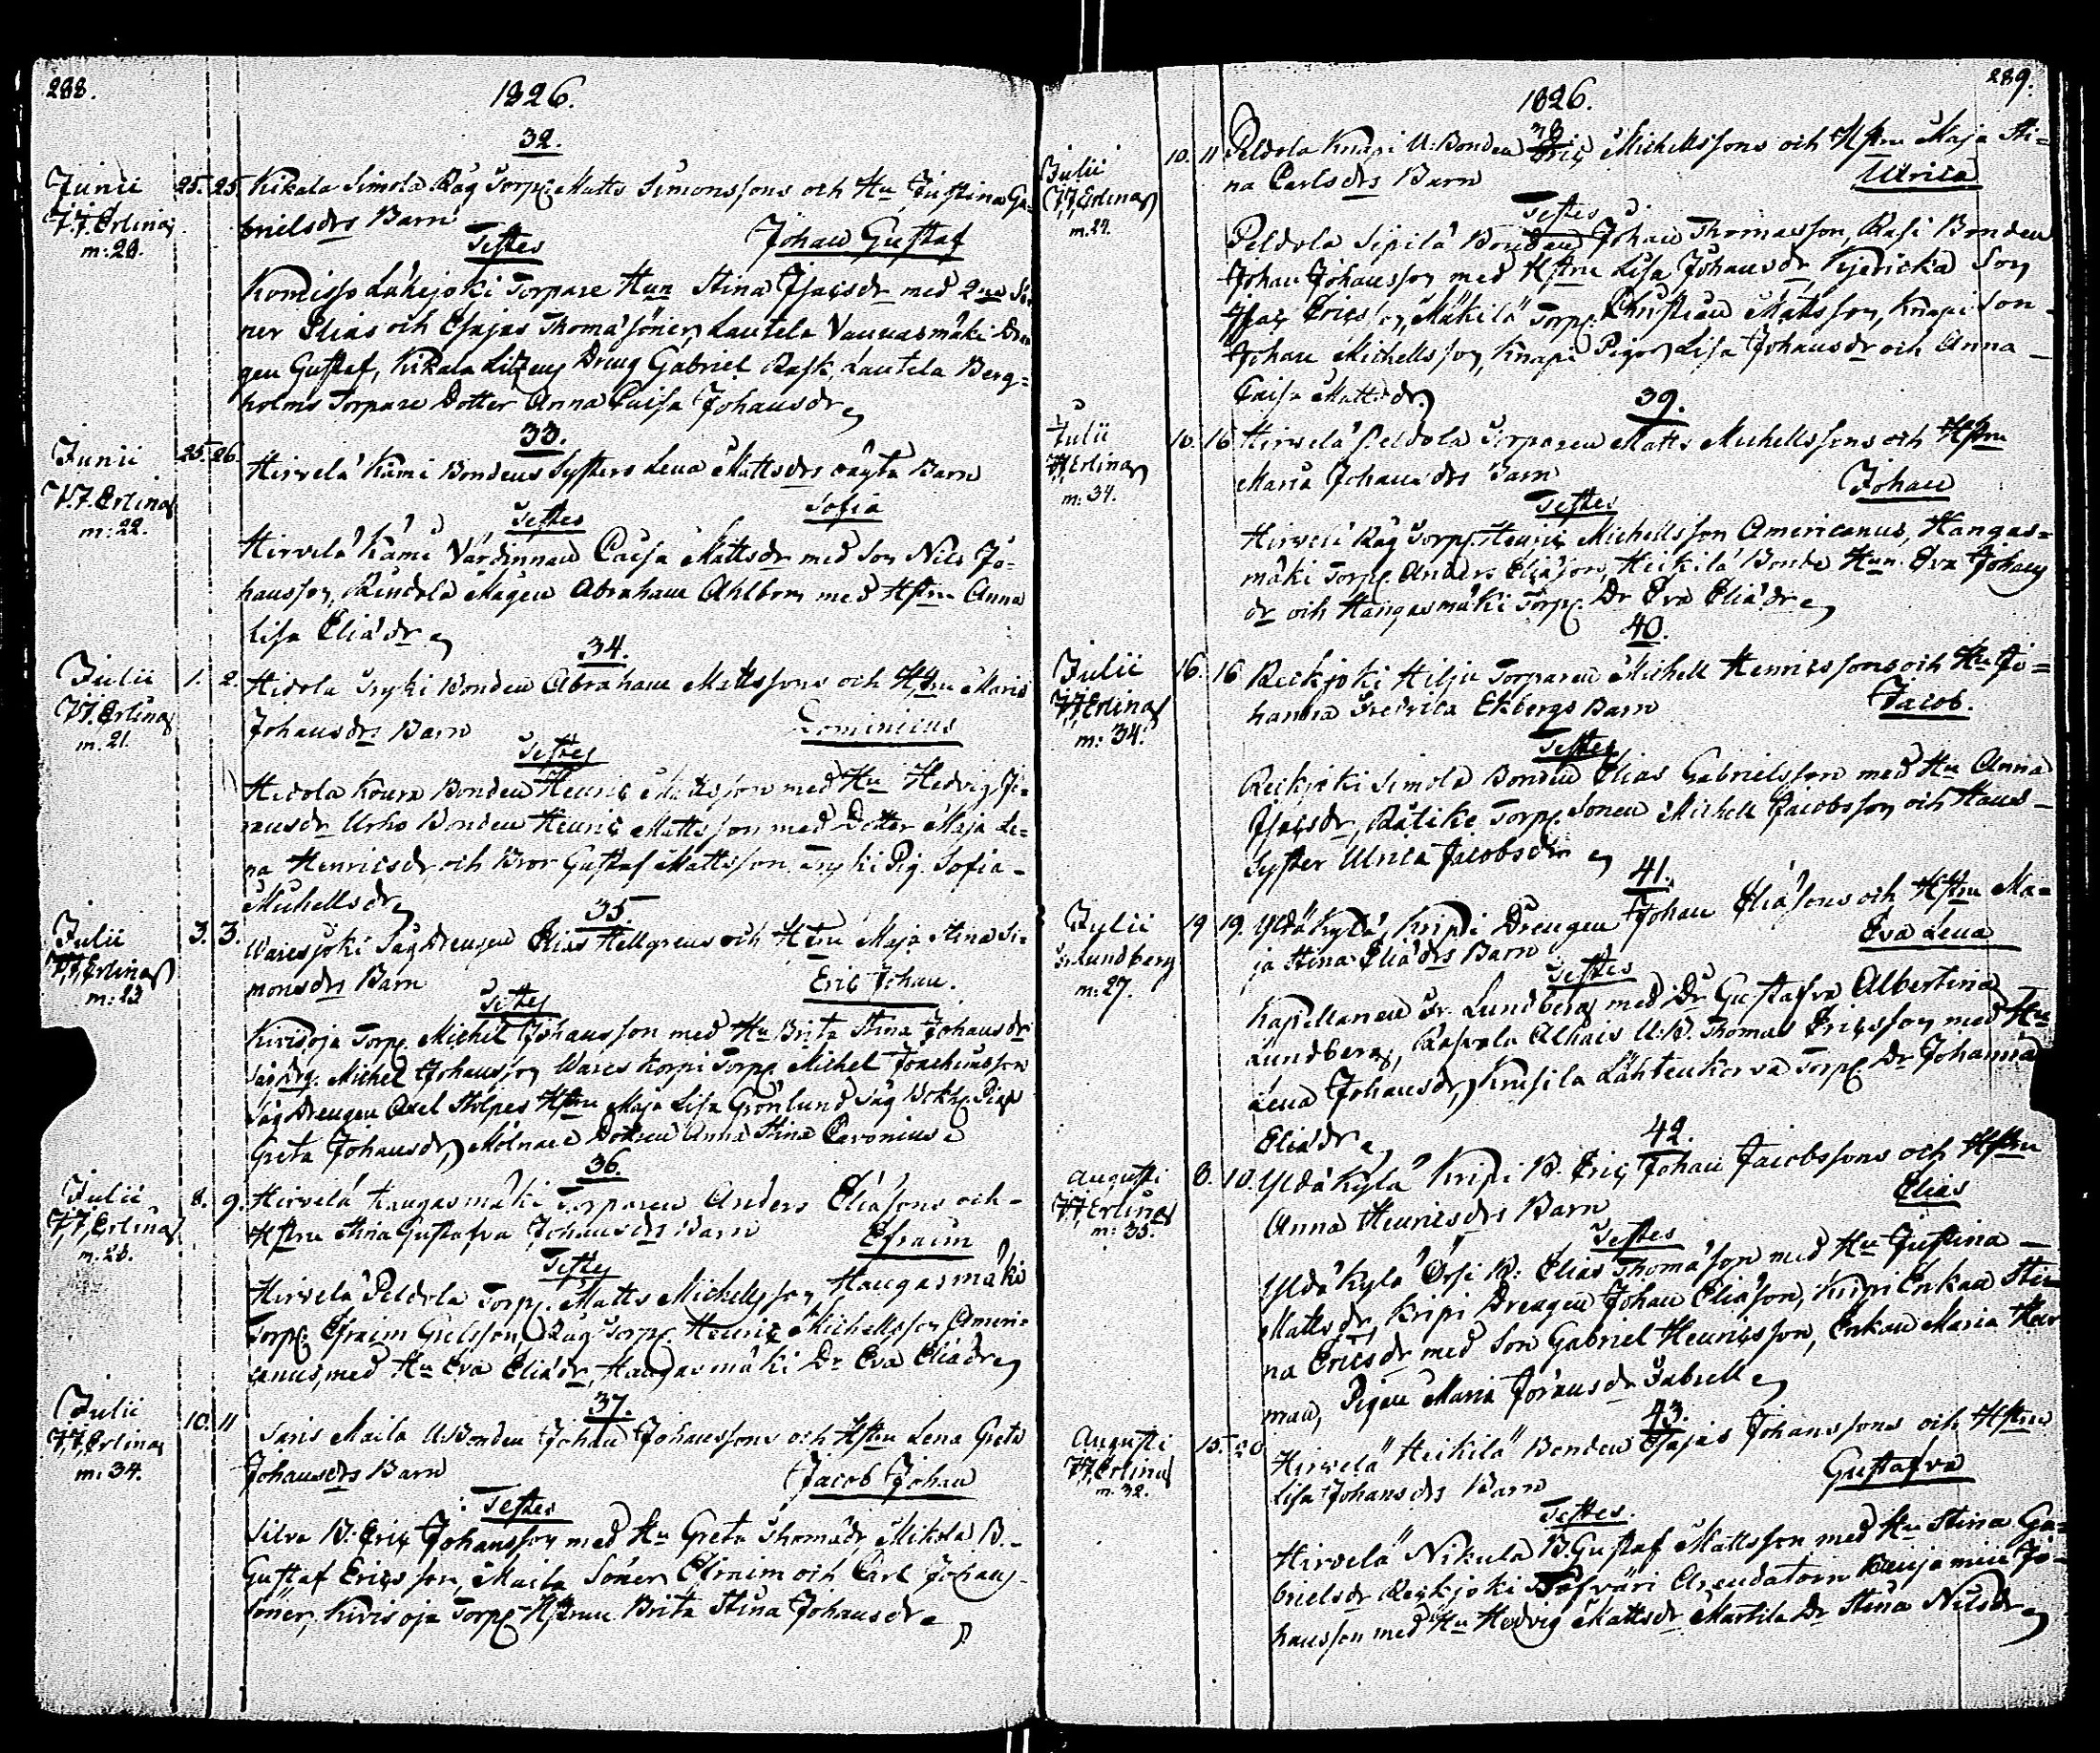 288.
1826.
32.
Junii 25. 25. Kikala Simola Råg Torp. Matts Simonssons och Hu Justina Ga-
J.J. Erling m: 20. brielsdrs Barn
Testes Johan Gustaf
Komisso Lähejoki Torpare Hun Stina Isacsdr med 2ne Sö-
ner Elias och Esajas Thomasöner, Lautela Vannasmäki Dren
gen Gustaf, Kikala Dreng Gabriel Rask, Lautela Berg-
holms Torpare Dotter Anna Caisa Johansdr
33.
Junii 25. 26. Hirvelä Kämi Bondens Systers Lena Mattsdrs oägta Barn
J.J. Erling m: 22. Sofia
Testes
Hirvelä Kämi Värdinnan Caisa Mattsdr med Son Nils Jo-
hansson, Rindola Mågen Abraham Ahlbom med Hstru Anna
Lisa Eliädr
34.
Julii 1. 2. Hidola Tryki Bonden Abraham Mattssons och Hstru Maria
J.J. Erling m. 21. Johansdrs Barn Dominicus
Testes
Hidola Koura Bonden Henric Mattsson med Hu Hedvig Jo-
hansdr Urho Bonden Henric Mattsson med Dotter Maja Le-
na Henricsdr och Bror Gustaf Mattsson Tryki Pig. Sofia
Michellsdr
35.
Julii 3. 3. Waresjoki Sågdrengen Elias Hellgrens och Hstru Maja Stina Si-
J.J. Erling m: 23 monsdrs Barn Eric Johan.
Testes
Kivisoja Torp. Michel Johansson med Hu Brita Stina Johansdr
Sågdrg. Michel Johansson Wares Korpi Torp. Michel Joachimsson
Såg Drengen Axel Stolpes Hstru Maja Lisa Grönlund Såg Bokh. Piga
Greta Johansdr, Mölnare Dottren Anna Stina Caronius
36.
Julii 8. 9. Hirvelä Hangasmäki Torparen Anders Eliäsons och
J.J. Erling m. 28. Hstru Stina Gustafva Johansdrs Barn Efraim
Testes
Hirvelä Peldola Torp. Matts Michellsson, Hangasmäki
Torp. Efraim Grelsson, Råg Torp. Henric Michellsson Ameri-
canus, med Hu Eva Eliädr, Hangasmäki Dr Eva Eliädr
37.
Julii 10. 11 Saris Maila U.Bonden Johan Johanssons och Hstru Lena Greta
J.J. Erling m. 34. Johansdrs Barn Jacob Johan
Testes
Silva B. Eric Johansson med Hu Greta Thomädr, Mikola B.
Gustaf Ericsson, Maila Söner Efraim och Carl Johans-
söner, Kivisoja Torp. Hstrun Brita Stina Johansdr
289.
1826.
38
Julii 10. 11 Peldola Knapi U: Bonden Eric Michellssons och Hstru Maja Sti-
J.J. Erling m. 29. na Carlsdrs Barn Ulrica
Testes
Peldola Sipilä Bonden Johan Thomasson, Rasi Bonden
Johan Johansson med Hstru Lisa Johansdr, Kjericka Son
Isac Ericsson, Mäkilä Torp. Christian Mattsson, Knapi Son
Johan Michellsson, Knapi Pigor Lisa Johansdr och Anna
Caisa Mattsdr
39.
Julii 10. 16 Hirvelä Peldola Torparen Matts Michellssons och Hstru
J.J. Erling m: 34. Maria Johansdrs Barn Johan
Testes
Hirvelä Råg Torp. Henric Michellsson Americanus, Hangas-
mäki Torp. Anders Eliäson, Heikilä Bonde Hun Eva Johans
dr och Hangasmäki Torp. Dr Eva Eliädr
40.
Julii 16. 16 Reikjoki Hilju Torparen Michell Henricssons och Hu Jo-
J.J. Erling m: 34. hanna Fredrica Ekbergs Barn Jacob.
Testes
Reikjoki Simola Bonden Elias Gabrielsson med Hu Anna
Isacsdr, Rätike Torp. Sonen Michell Jacobsson och Hans
Syster Ulrica Jacobsdr
41.
Julii 19 19. Yldäkylä, Kripi Drengen Johan Eliäsons och Hstru Ma-
Fr. Lundberg m: 27. ja Stina Eliädrs Barn Eva Lena
Testes
Kapellanen Fr. Lundberg med Dr Gustafva Albertina
Lundberg, Raswala Alhais U.B. Thomas Ericsson med Hu
Lena Johansdr, Krusila Lähtenkorva Torp. Dr Johanna
Eliädr
42.
Augusti 8. 10. Yldäkylä Kripi B. Eric Johan Jacobssons och Hstru
J.J. Erling m: 35. Anna Henricsdrs Barn Elias
Testes
Yldäkylä Orsi B: Elias Thomäson med Hu Justina
Mattsdr, Kripi Drengen Johan Eliäson, Kripi Enkan Sti-
na Ericsdr med Son Gabriel Henricsson, Enkan Maria Her
man, Pigan Maria Johansdr Sabell
43.
Augusti 15. 20 Hirvelä Heikilä Bonden Esajas Johanssons och Hstru
J.J. Erling m. 32. Lisa Johansdrs Barn Gustafva
Testes.
Hirvelä Nikula B. Gustaf Mattsson med Hu Stina Ga-
brielsdr Reikjoki Arendatorn Benjamin Jo-
hansson med Hu Hedvig Mattsdr Martila Dr Stina Nilsdr